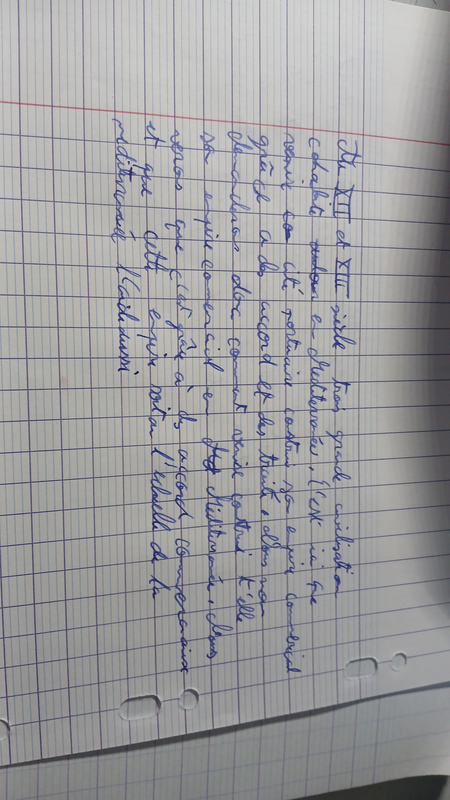 Au XII et XIII siècle trois grande civilisation
cohabite en Méditerranée, C'est ici que
venise cité portuaire contrui sa empire comercial
grâce a des accord et des traité, nous nous
demanderons donc coment venise contrui t'elle
sa empire comercial en Méditerranée, Nous
verons que c'est grâce à des accord commerciaux
et que cette empire l'échelle de la
méditerranée